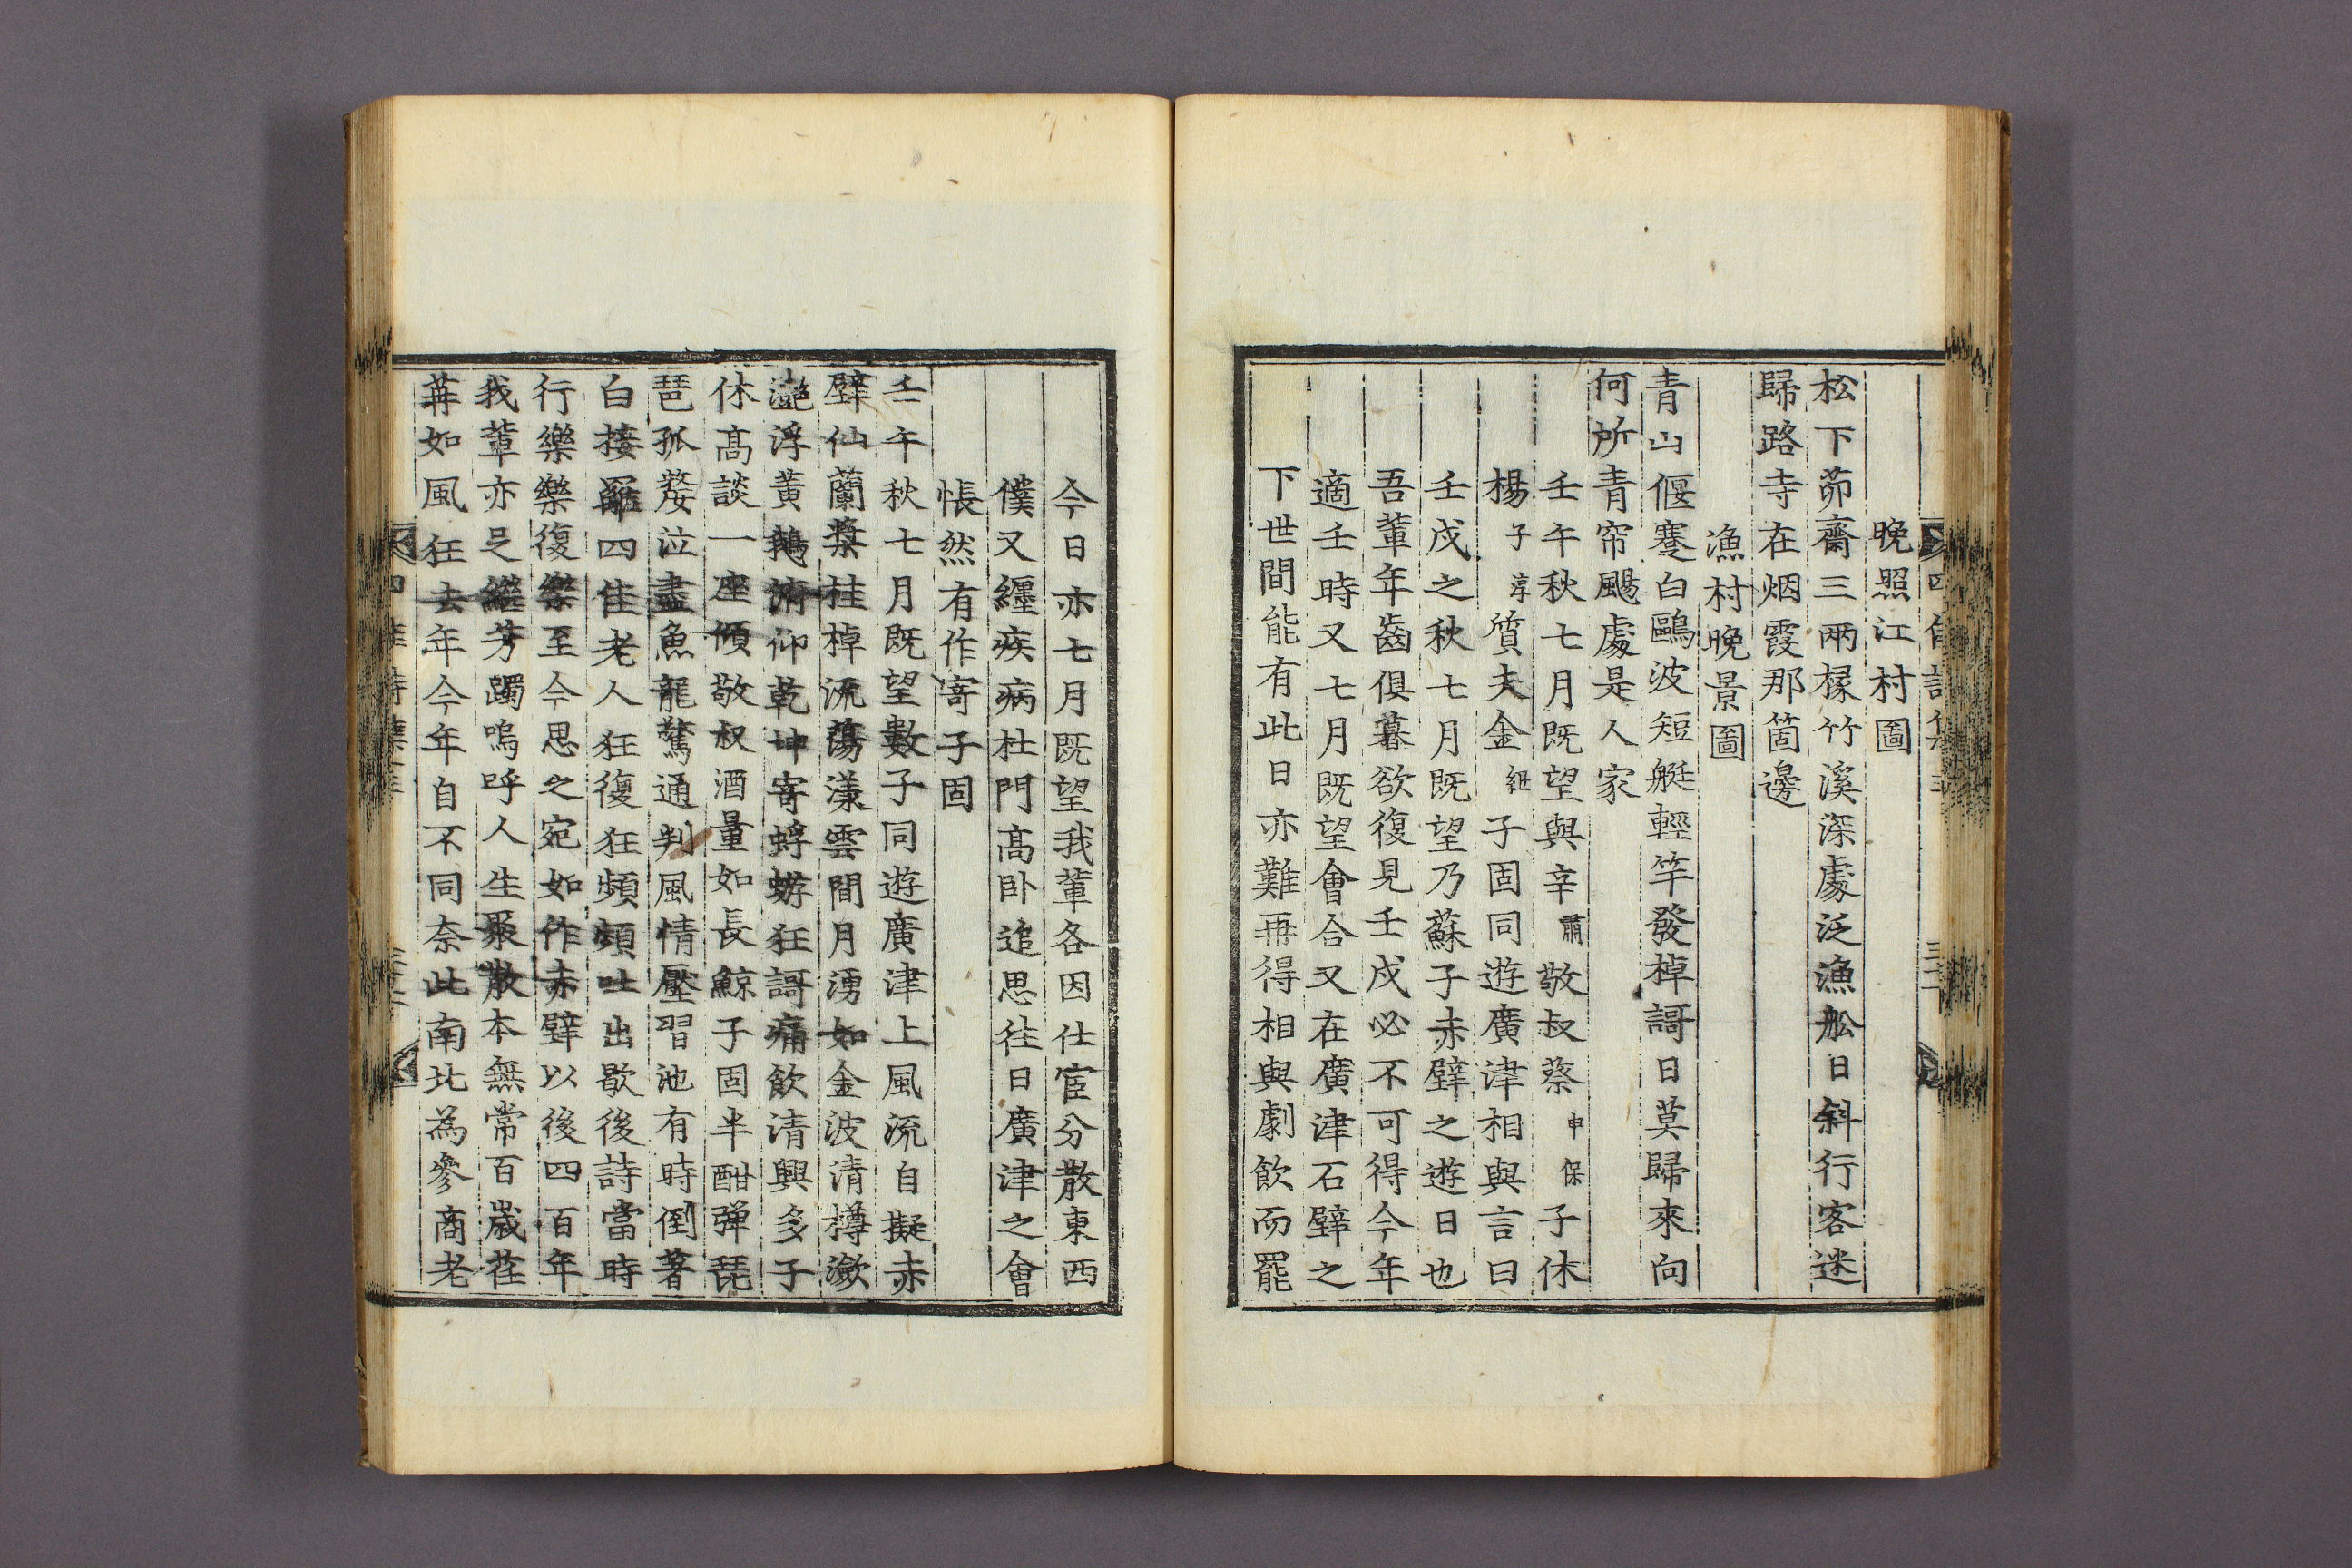 晚照江村圖
松下茆齋三兩椽竹溪深處泛漁舩日斜行客迷
歸路寺在烟霞那箇邊
漁村晚景圖
青山偃蹇白鷗波短艇輕竿發棹謌日莫歸來向
何所青帘颺處是人家
壬午秋七月既望與辛肅敬叔蔡申保子休
楊子淳質夫金紐子固同遊廣津相與言曰
壬戌之秋七月既望乃蘇子赤壁之遊日也
吾輩年齒俱暮欲復見壬戌必不可得今年
適壬時又七月既望會合又在廣津石壁之
下世間能有此日亦難再得相與劇飲而罷
今日亦七月既望我輩各因仕宦分散東西
僕又纏疾病杜門高卧追思徃日廣津之會
悵然有作寄子固
壬午秋七月既望數子同遊廣津上風流自擬赤
壁仙蘭槳桂棹流蕩漾雲間月湧如金波清樽瀲
灔浮黃鵝俯仰乾坤寄蜉蝣狂謌痛飲清興多子
休高談一座傾敬叔酒量如長鯨子固半酣弹琵
琶孤嫠泣盡魚龍驚通判風情壓習池有時倒著
白接䍦四佳老人狂復狂頻頻吐出歇後詩當時
行樂樂復樂至今思之宛如作赤壁以後四百年
我輩亦足繼芳躅嗚呼人生聚散本無常百歲荏
苒如風狂去年今年自不同奈此南北為參商老